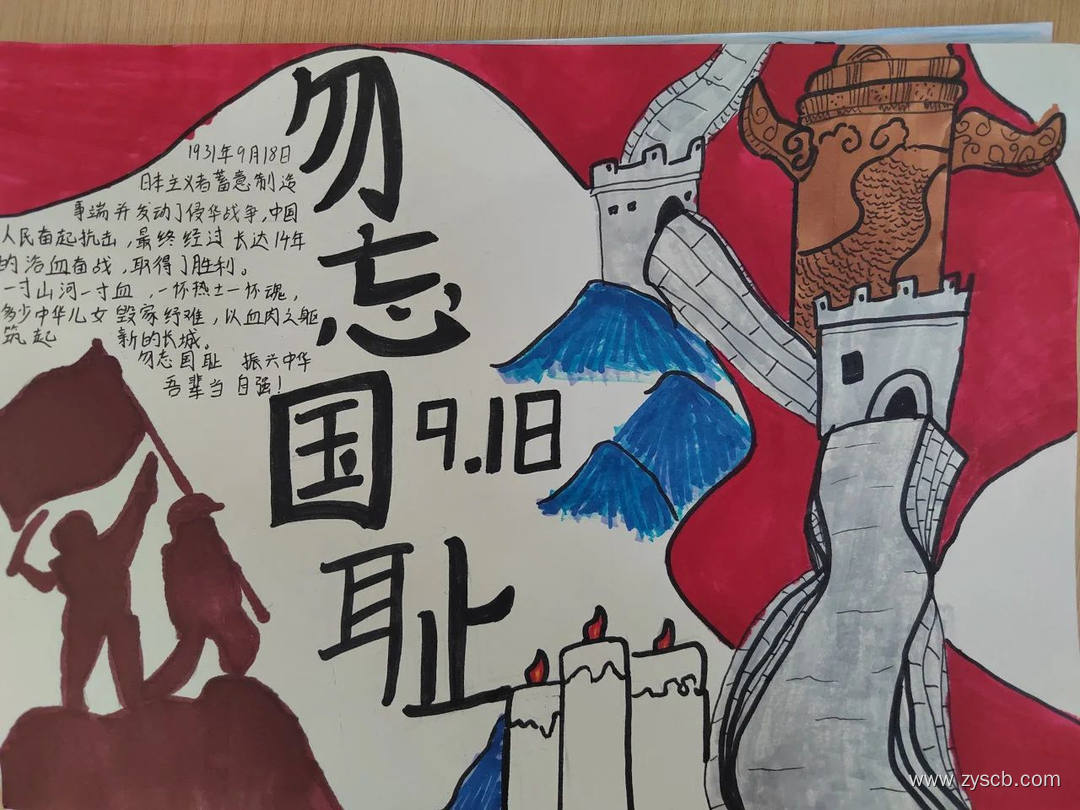 勿忘国耻
9.18
1931年9月18日
日本主义者蓄意制造
事端并发动了侵华战争,中国
人民奋起抗击,最终经过长达14年
的浴血奋战,取得了胜利。
一寸山河一寸血,一怀热土一怀魂,
多少中华儿女毁家纾难,以血肉之躯
筑起 新的长城。
勿忘国耻 振兴中华
吾辈当自强!
www.zyscb.com